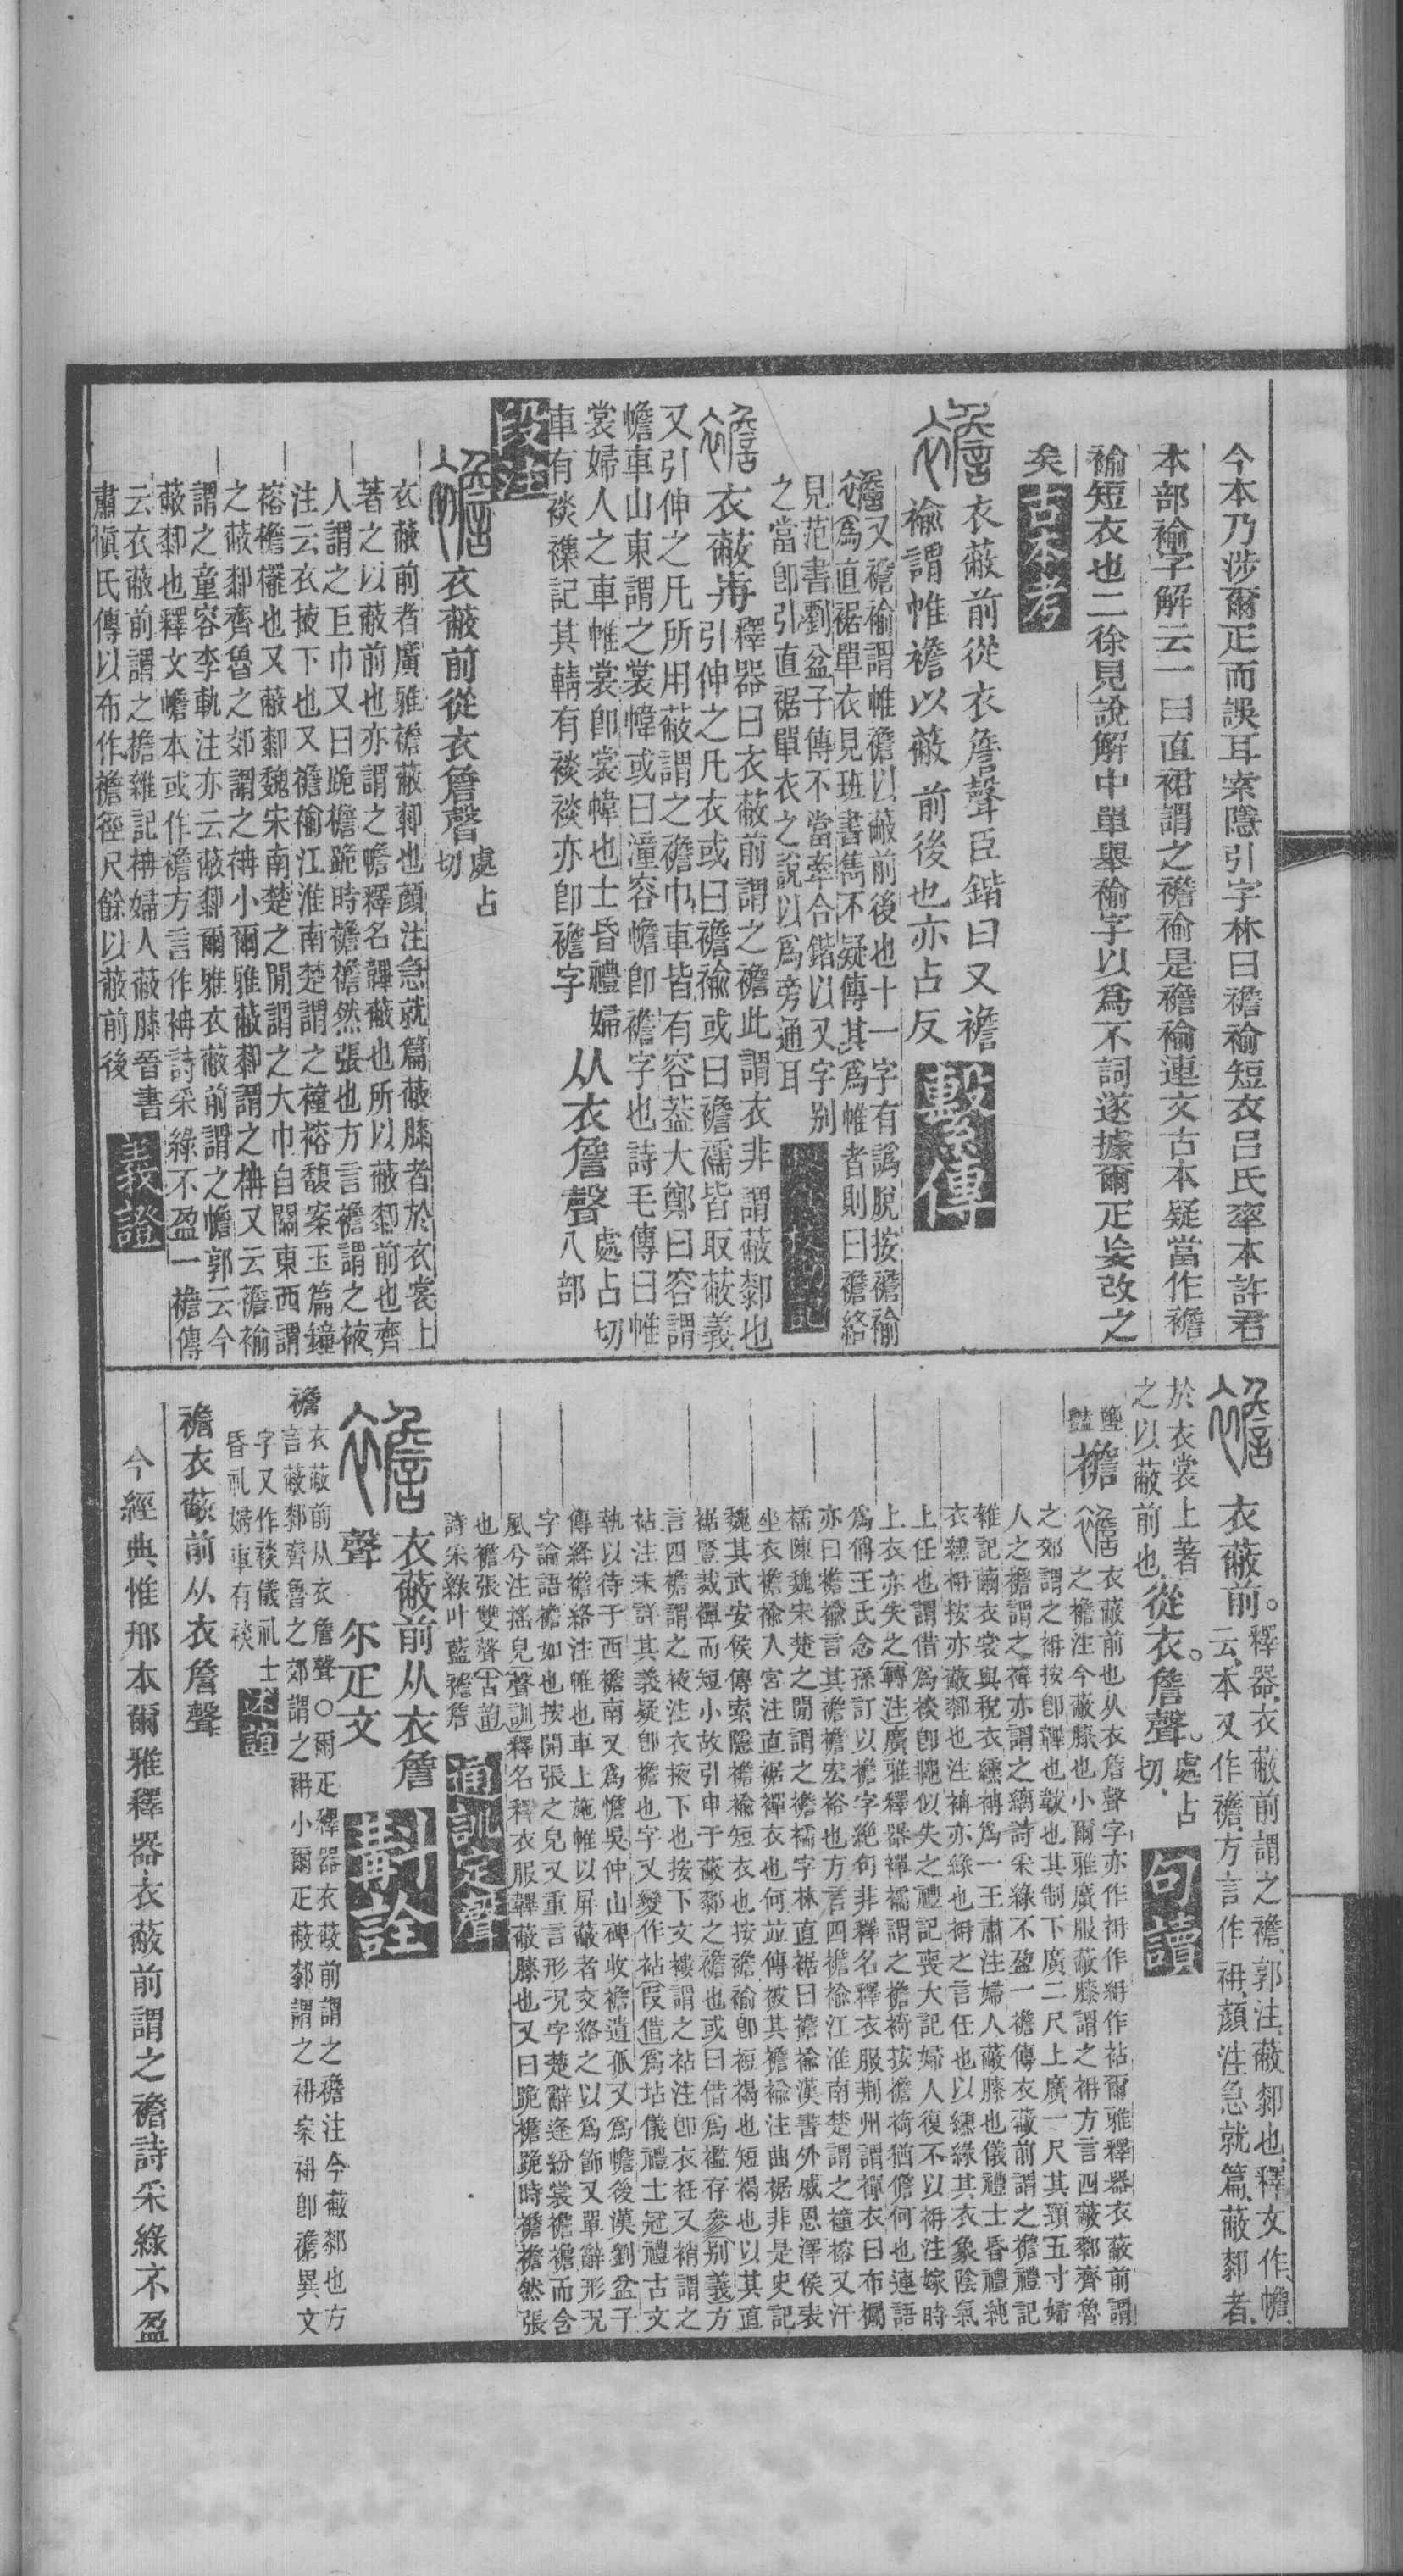 今本乃涉爾疋而誤耳索隱引字林曰襜褕短衣呂氏率本許君
本部褕字解云一曰直裾謂之襜褕是襜褕連文古本疑當作襜
褕短衣也二徐見說解中單舉褕字以爲不詞遂據爾疋妄改之
矣 古本考
襜 衣蔽前從衣詹聲臣鍇曰又襜
褕謂帷襜以蔽前後也亦占反 繫傳
襜又襜褕謂帷襜以蔽前後也十一字有譌脫按襜褕
爲直裾單衣見班書雋不疑傳其爲帷者則曰襜絡
見范書劉盆子傳不當牽合鍇以又字別
之當卽引直裾單衣之說以爲旁通耳
襜 衣蔽歬釋器曰衣蔽前謂之襜此謂衣非謂蔽厀也
引伸之凡衣或曰襜褕或曰襜襦皆取蔽義
又引伸之凡所用蔽謂之襜巾車皆有容葢大鄭曰容謂
幨車山東謂之裳幃或曰潼容幨卽襜字也詩毛傳曰帷
裳婦人之車帷裳卽裳幃也士昏禮婦
車有裧襍記其輤有裧裧亦卽襜字
从衣詹聲處占切八部
段注
襜 衣蔽前從衣詹聲處占切
衣蔽前者廣雅襜蔽厀也顏注急就篇蔽膝者於衣裳上
著之以蔽前也亦謂之幨釋名韠蔽也所以蔽厀前也齊
人謂之巨巾又曰跪襜跪時襜襜然張也方言襜謂之被
注云衣掖下也又襜褕江淮南楚謂之𧝎褣馥案玉篇𧝎
褣襜襬也又蔽厀魏宋南楚之閒謂之大巾自關東西謂
之蔽厀齊魯之郊謂之袡小爾雅蔽厀謂之袡又云襜褕
謂之童容李軌注亦云蔽厀爾雅衣蔽前謂之幨郭云今
蔽厀也釋文幨本或作襜方言作袡詩采綠不盈一襜傳
云衣蔽前謂之襜雜記袡婦人蔽膝晉書
肅愼氏傳以布作襜徑尺餘以蔽前後
義證
襜 衣蔽前。釋器衣蔽前謂之襜郭注蔽厀也釋文作幨
云本又作襜方言作袡顏注急就篇蔽厀者
於衣裳上著
之以蔽前也從衣。詹聲。處占切 句讀
襜 衣蔽前也从衣詹聲字亦作袡作䋎作袩爾雅釋器衣蔽前謂
之襜注今蔽膝也小爾雅廣服蔽膝謂之袡方言四蔽厀齊魯
之郊謂之袡按卽韠也韍也其制下廣二尺上廣一尺其頸五寸婦
人之襜謂之褘亦謂之縭詩采綠不盈一襜傳衣蔽前謂之襜禮記
雜記繭衣裳與稅衣纁袡爲一王肅注婦人蔽膝也儀禮士昏禮純
衣纁袡按亦蔽厀也注袡亦緣也袡之言任也以纁緣其衣象陰氣
上任也謂借爲裧卽䋎似失之禮記喪大記婦人復不以袡注嫁時
上衣亦失之轉注廣雅釋器襌襦謂之襜裿按襜裿猶儋何也連語
爲儋王氏念孫訂以襜字絶句非釋名釋衣服荆州謂襌衣曰布襡
亦曰襜褕言其襜襜宏裕也方言四襜褕江淮南楚謂之𧝎褣又汗
襦陳魏宋楚之閒謂之襜襦字林直裾曰襜褕漢書外戚恩澤侯表
坐衣襜褕入宮注直裾襌衣也何並傳被其襜褕注曲裾非是史記
魏其武安侯傳索隱襜褕短衣也按襜褕卽裋褐也短褐也以其直
裾豎裁襌而短小故引申于蔽厀之襜也或曰借爲襤存參別義方
言四襜謂之被注衣掖下也按下文褸謂之袩注卽衣衽又䘯謂之
袩注未詳其義疑卽襜也字又變作袩叚借爲坫儀禮士冠禮古文
執以待于西襜南又爲幨吳仲山碑收襜遺孤又爲幨後漢劉盆子
傳絳襜絡注帷也車上施帷以屏蔽者交絡之以爲飾又單辭形況
字論語襜如也按開張之皃又重言形況字楚辭逢紛裳襜襜而含
風兮注搖皃聲訓釋名釋衣服韠蔽膝也又曰跪襜跪時襜襜然張
也襜張雙聲古韵
詩采綠叶藍襜詹
通訓定聲
襜 衣蔽前从衣詹
聲 尒疋文 斠詮
襜 衣蔽前从衣詹聲○爾疋釋器衣蔽前謂之襜注今蔽厀也方
言蔽厀齊魯之郊謂之袡小爾疋蔽厀謂之袡案袡卽襜異文
字又作裧儀礼士
昏礼婦車有裧 述誼
襜衣蔽前从衣詹聲
今經典惟邢本爾雅釋器衣蔽前謂之襜詩采綠不盈